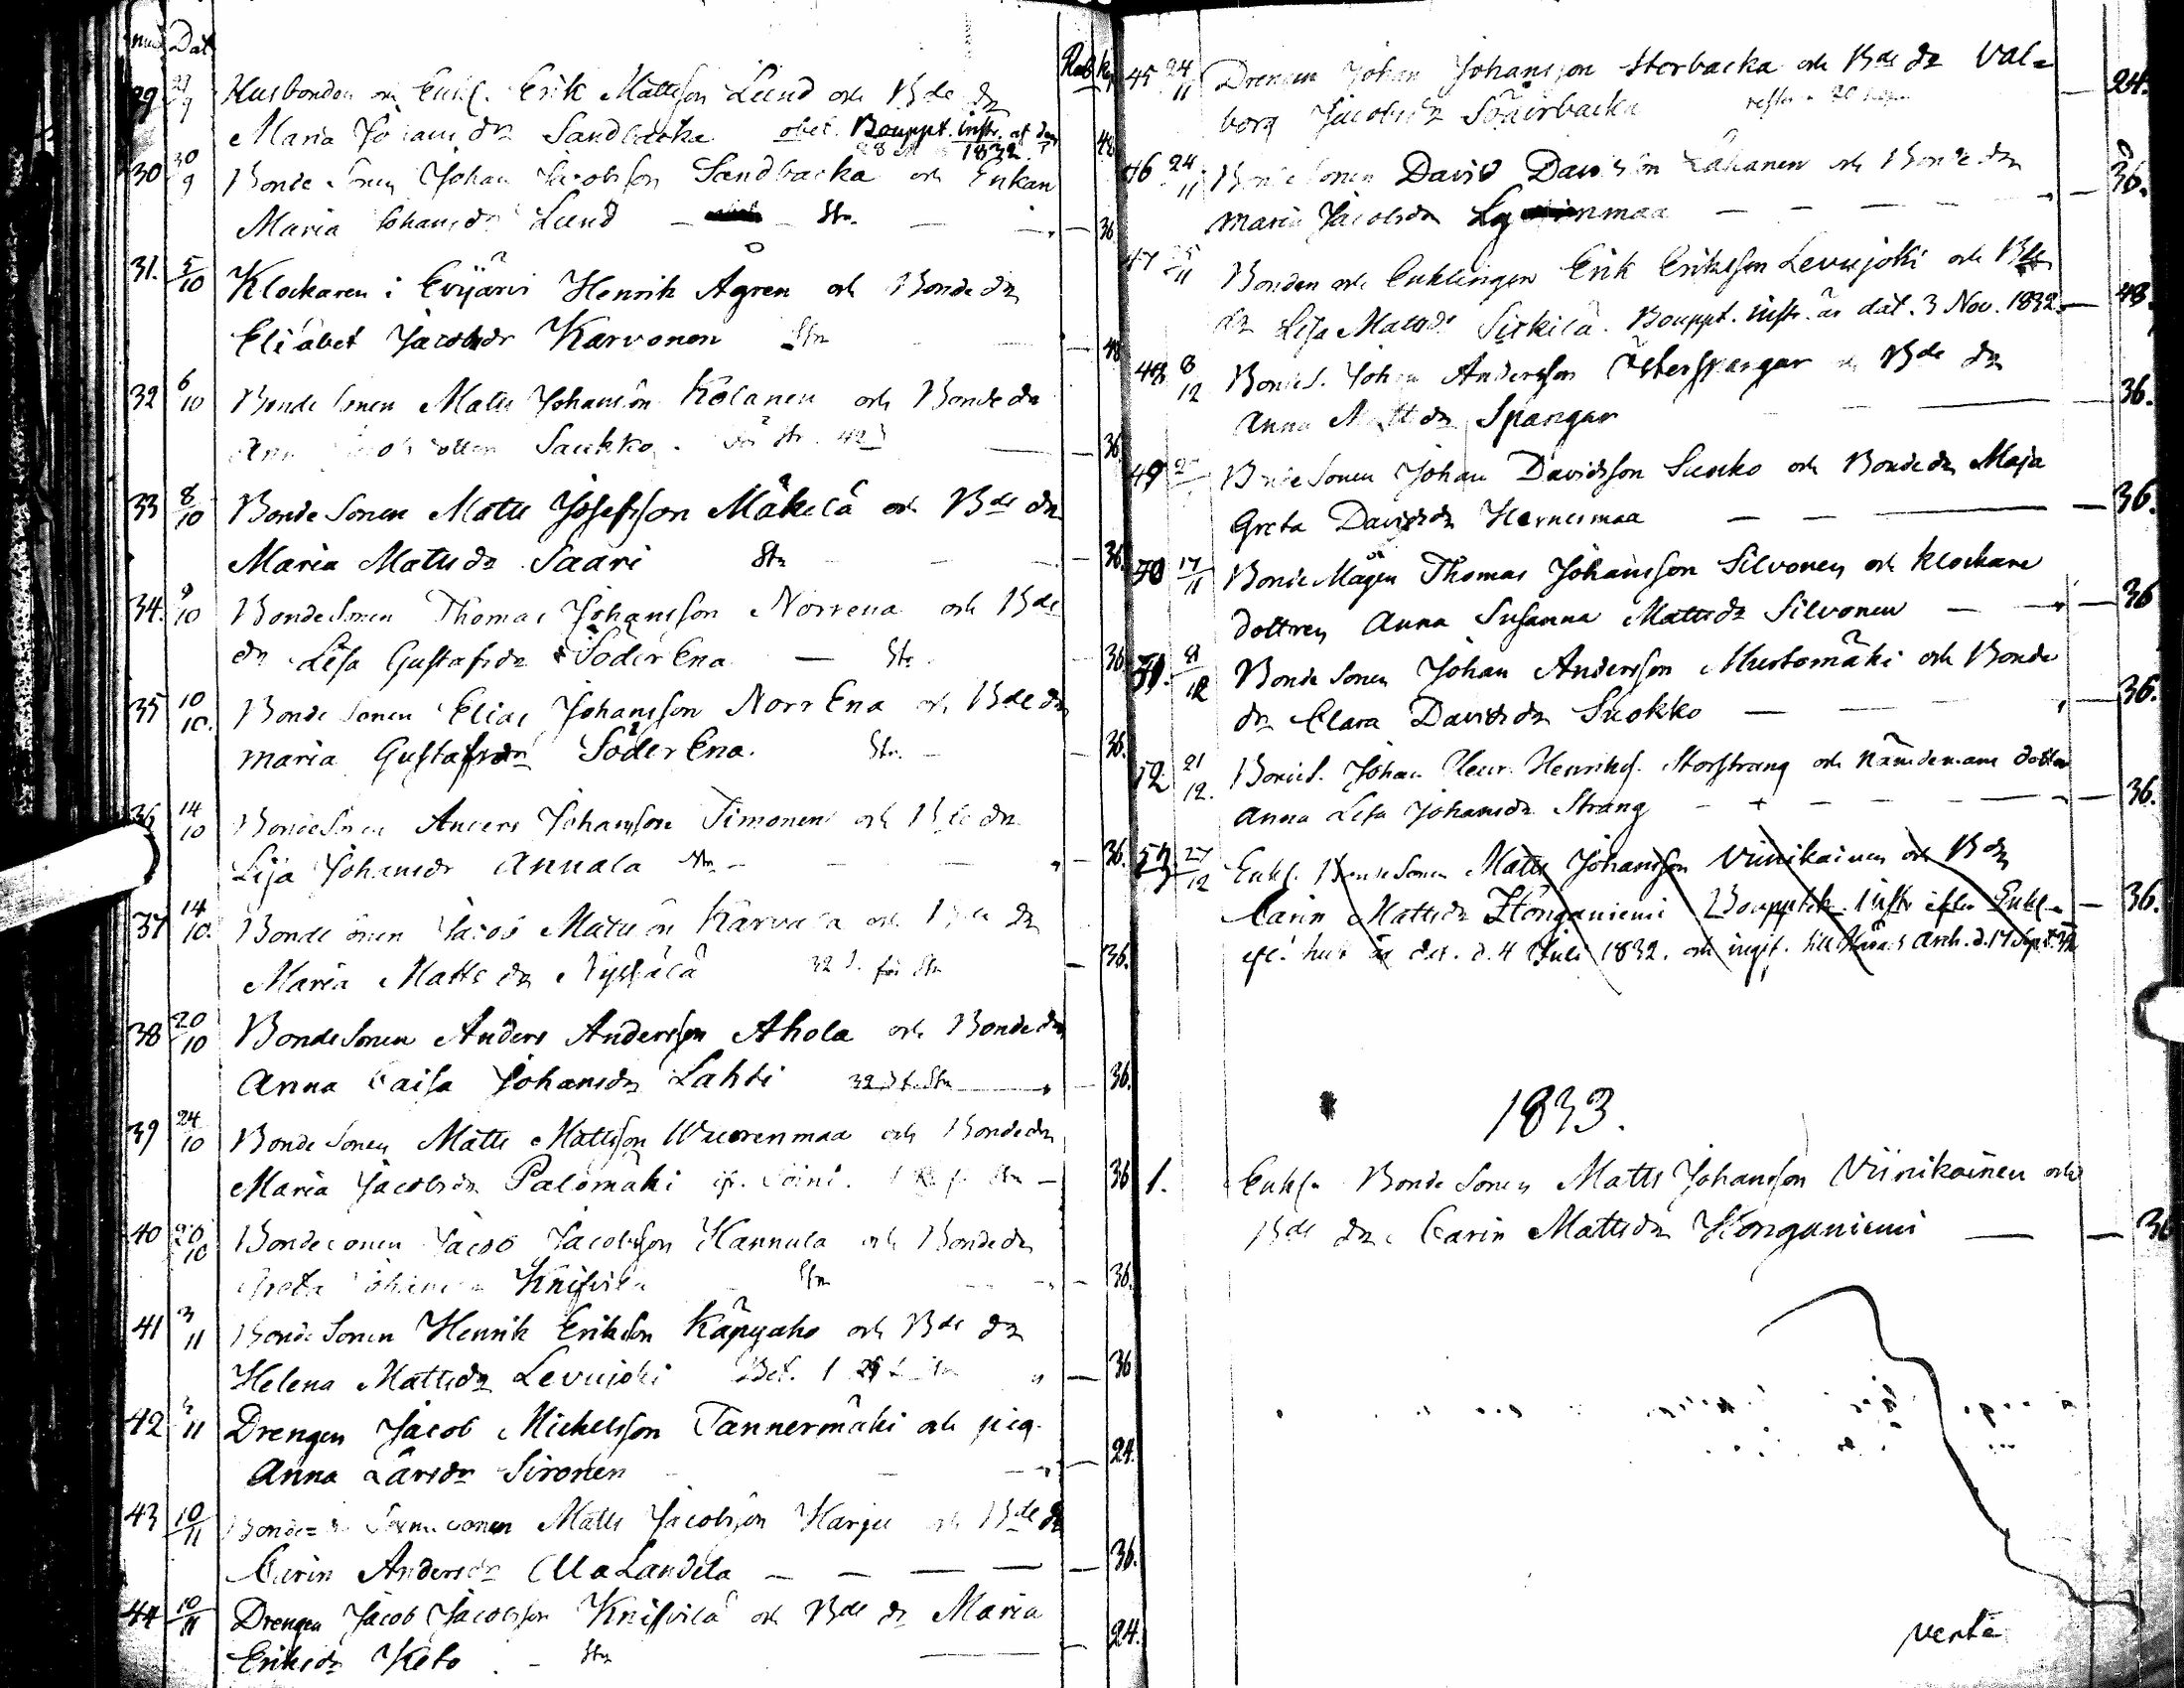 Dat
29 23/9 Husbonden och Enkl. Erik Mattsson Lund och Bde dr
Maria Johansdr Sandbacka obet. Bouppt. instr. af den
1832.
48
30 30/9 Bonde Sonen Johan Jacobsson Sandbacka och Enkan
Maria Johansdr Lund — Str. — 36
31. 5/10 Klockaren i Evijärvi Henrik Ågren och Bonde dr
Elisabet Jacobsdr Karvonen Str — 48
32 6/10 Bonde Sonen Matts Johansson Kolanen och Bonde dr
Saukko — 36
33 8/10 Bonde Sonen Matts Josefsson Mäkelä och Bde dr
Maria Mattsdr Saari Str — 36.
34. 9/10 Bonde Sonen Thomas Johansson Norrena och Bde
dr Lisa Gustafsdr SöderEna — Str. — 36
35 10/10. Bonde Sonen Elias Johansson NorrEna och Bde dr
Maria Gustafsdr SöderEna. Str. — 36.
36 14/10 Bonde Sonen Anders Johansson Timonen och Bde dr
Lisa Johansdr Annala Str — 36.
37 14/10. Bonde Sonen Jacob Mattsson Karvala och Bde dr
Maria Matts dr 32 för Str — 36.
38 20/10 Bonde Sonen Anders Andersson Ahola och Bonde dr
Anna Caisa Johansdr Lahti 32 Str — 36.
39 24/10 Bonde Sonen Matts Mattsson Wuorenmaa och Bonde dr
Maria Jacobsdr Palomäki Str — 36
40 20/10 Bonde Sonen Jacob Jacobsson Kannula och Bonde dr
Greta Johansdr Knifsilä Str — 36.
41 3/11 Bonde Sonen Henrik Eriksson Käpyaho och Bde dr
Helena Mattsdr Levujoki Bet. — 36
42 /11 Drengen Jacob Mickelsson Tannermäki och pig.
Anna Larsdr Sironen — 24.
43 10/11 Matts Jacobsson Harju och Bde dr
Carin Andersdr Ala Landela — — — — 36.
44 10/11 Drengen Jacob Jacobsson Knifsilä och Bde dr Maria
Eriksdr Keto — Str — 24.
45 24/11 Drengen Johan Johansson Storbacka och Bde dr Val=
borg Jacobsdr Söderbacka — 24.
46 24/11 Bonde Sonen David Davidsson Lähanen och Bonde dr
Maria Jacobsdr — — — — 36.
47 /11 Bonden och Enklingen Erik Eriksson Levujoki och Bde
dr Lisa Mattsdr Sirkilä. Bouppt. instr. är dat. 3 Nov. 1832. — 48.
48 8/12 Bondes. Johan Andersson Österspangar och Bde dr
Anna Mattsdr Spangar — 36.
49 Bonde Sonen Johan Davidsson Suoko och Bonde dr Maja
Greta Davidsdr Hernesmaa — — — 36.
50 17/11 Bonde Mågen Thomas Johansson Silvonen och Klockare
dottren Anna Susanna Mattsdr Silvonen — 36
51. 8/12 Bonde Sonen Johan Andersson Mustomäki och Bonde
dr Clara Davidsdr Suokko — — 36.
52 21/12. Bondes. Johan Henriks. Storstrang och Nämdemans dotter
Anna Lisa Johansdr Strang — + — — — 36.
53 27/12 Enkl. Bonde Sonen Matts Johansson Viinikainen och Bdr
Carin Mattsdr Honganiemi Bouppteck. instr. efter Enkl. — 36.
hust är dat. d. 4 Juli 1832. och ingif. till Härads arch. d. 17 Sept. 32
1833.
1. Enkl. Bonde Sonen Matts Johansson Viinikainen och
Bde dr Carin Mattsdr Honganiemi — — 36
verte